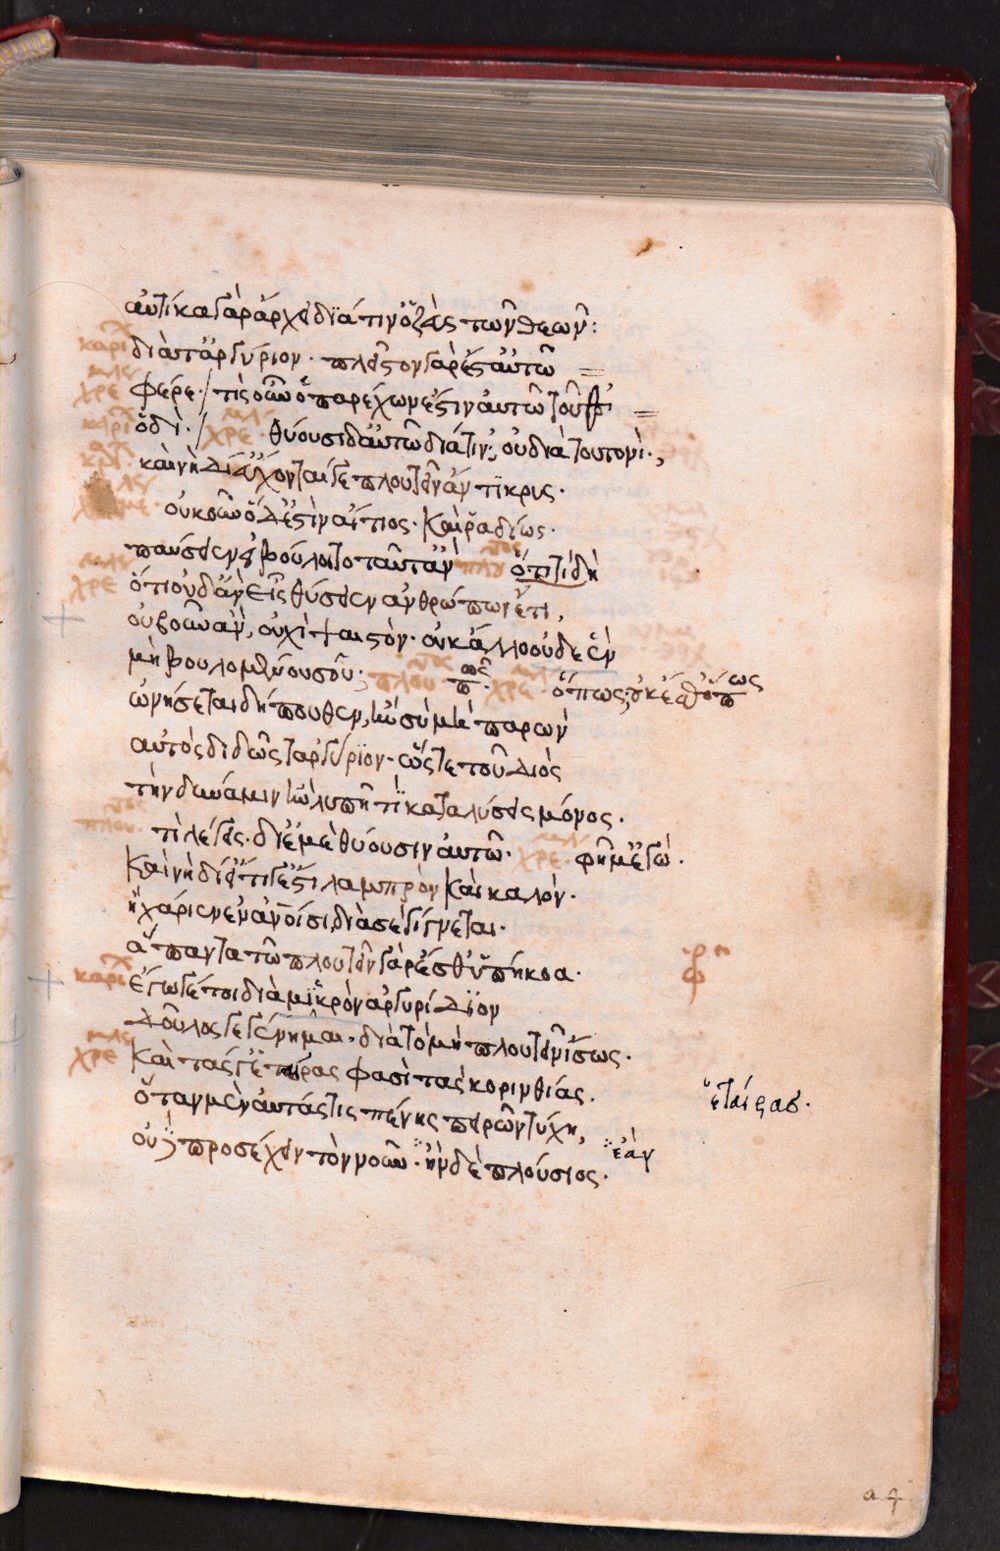 αὐτίκα γὰρ ἄρχει διὰ τίν' ὁ ζεὺς τῶν θεῶν:
καρι διὰ τἀργύριον· πλεῖστον γάρ ἐστ' αὐτῶ
χρε φέρε· / τίς οὖν ὁ παρέχων ἐστὶν αὐτῶ τοῦθ'
καρι ὁδί· / χρε· θύουσι δ' αὐτῶ διὰ τίν'; οὐ διὰ τουτονί·
καρι· καὶ νὴ Δί' εὔχονται γε πλουτεῖν ἄντικρις·
χρε οὐκοῦν ὅδ' ἐστὶν αἴτιος· καὶ ῥαδίως·
παύσειεν εἰ βούλοιτο ταῦτ' ἄν πλου ὁτιὴ τί δὴ
χρε ὅτι οὐδ' ἂν εἷς θύσειεν ἀνθρώπων ἔτι,
οὐ βοῦν ἄν, οὐχὶ ψαιστόν· οὐκ ἄλλο οὐδὲ ἓν
μὴ βουλομένου σοῦ· πλου πῶς· χρε· ὅπως; οὐκ ἔσθ' ὅπως
ὠνήσεται δήπουθεν, ἢν σὺ μὴ παρὼν
αὐτὸς διδῶς τἀργύριον· ὥστε τοῦ Διὸς
τὴν δύναμιν ἢν λυπῆ τι καταλύσεις μόνος·
πλου· τί λέγεις· δι' ἐμὲ θύουσιν αὐτῶ· χρε· φήμ' ἐγώ·
καὶ νὴ δί' εἴ τι γ' ἔστι λαμπρὸν καὶ καλόν·
ἢ χάριεν ἐν ἀνοῖσι, διὰ σὲ γίγνεται·
ἅπαντα τῶ πλουτεῖν γάρ ἐσθ' ὑπήκοα·
καρι ἔγωγέ τοι διὰ μικρὸν ἀργυρίδιον
δοῦλος γεγένημαι· διὰ τὸ μὴ πλουτεῖν ἴσως·
χρε καὶ τάς γ' ἑταίρας φασὶ τὰς κορινθίας·
ἑταίρας·
ὅταν μὲν αὐτάς τις πένης πειρῶν τύχη,
οὐδὲ προσέχειν τὸν νοῦν· ἢν δὲ πλούσιος·
ἐὰν